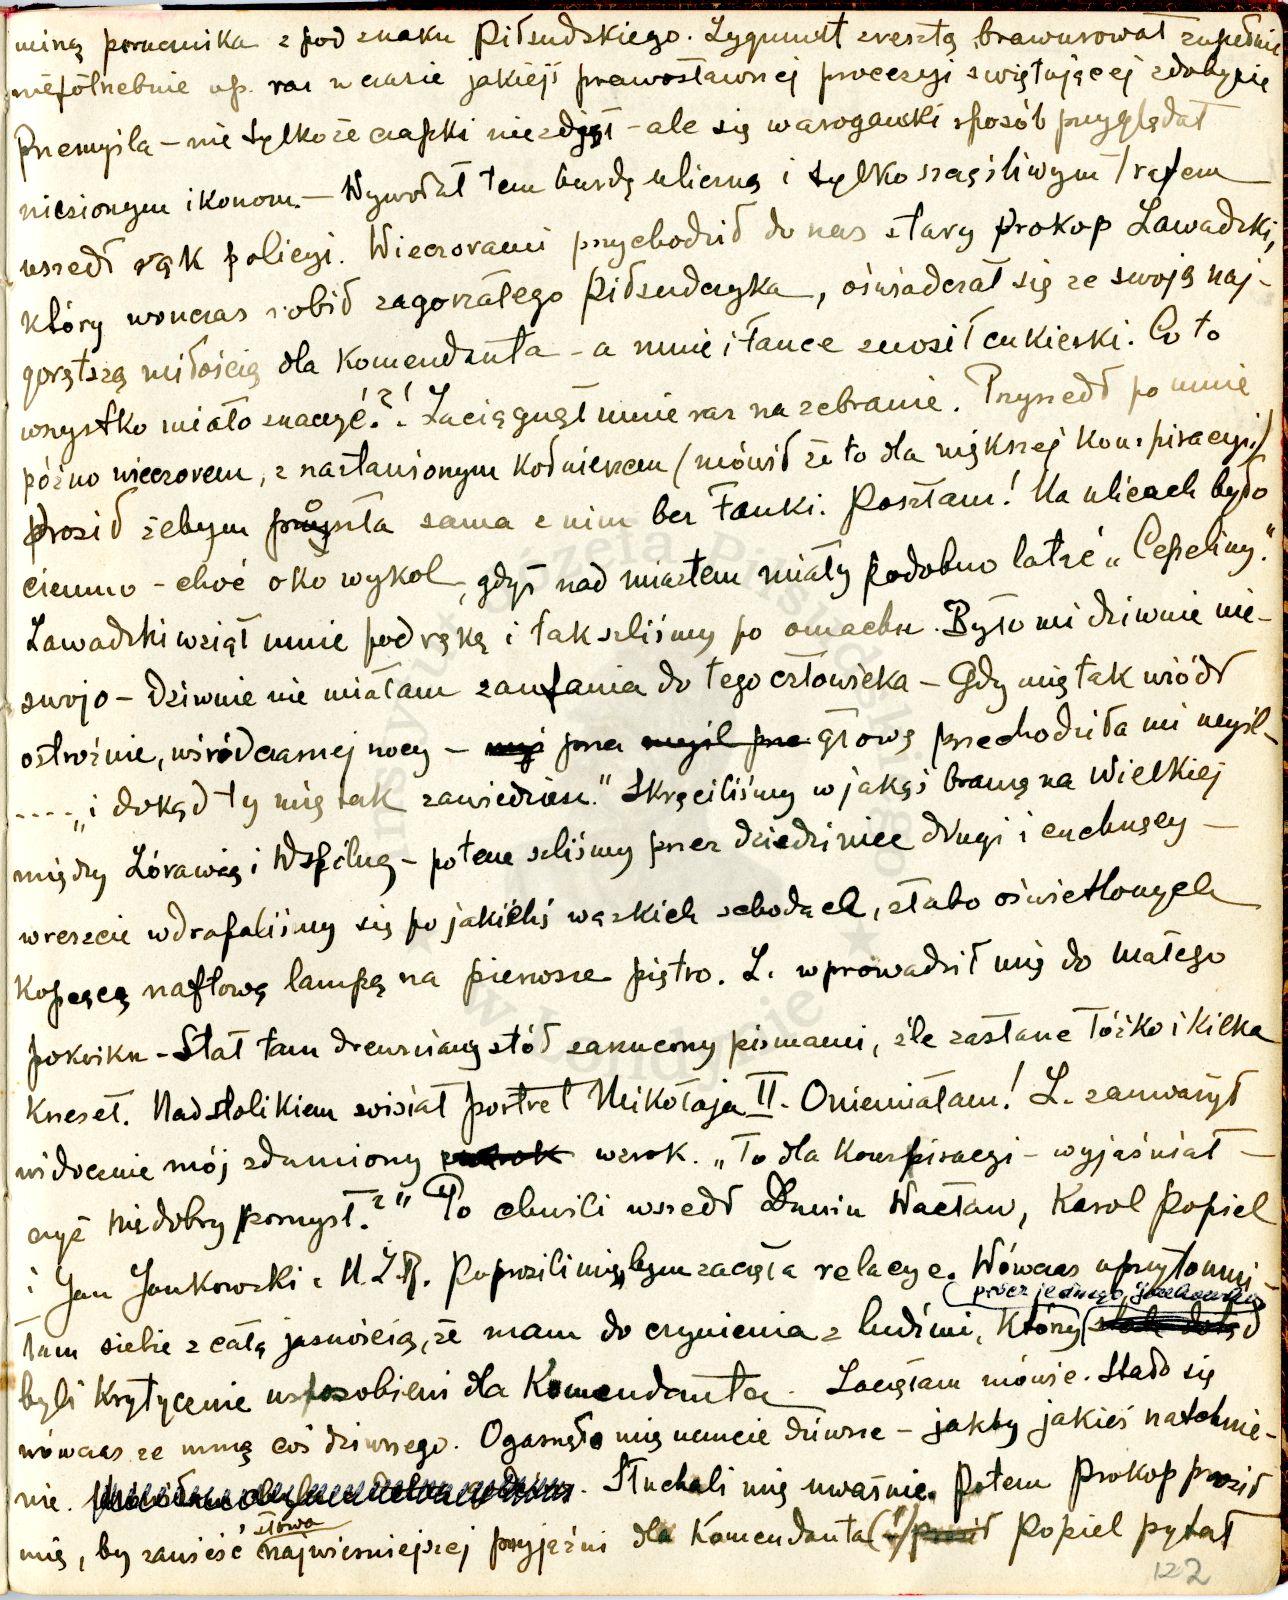 miną porucznika z pod znaku Piłsudskiego. Zygmunt zresztą brawurował zupełnie
niepotrzebnie np. raz w czasie jakiejś prawosławnej procesyi święłującej zdobycie
Przemyśla – nie tylko że czapki nie zdjął – ale się w arogancki sposób przyglądał
niesionym ikonom. – Wywołał tem burdę uliczną i tylko szczęśliwym trafem
uszedł rąk policyi. Wieczorami przychodził do nas stary Prokop Zawadzki,
który wonczas robił zagorzałego Piłsudczyka, oświadczał się ze swoją naj-
gorętszą miłością dla Komendanta – a mnie i Tańce znosił cukierki. Co to
wszystko miało znaczyć?! Zaciągnął mnie raz na zebranie. Przyszedł po mnie
późno wieczorem, z nastawionym kołnierzem (mówił że to dla większej konspiracyi)
prosił żebym poszła sama z nim bez Tańki. Poszłam! Na ulicach było
ciemno – choć oko wykol, gdyż nad miastem miały podobno latać „Cepeliny".
Zawadzki wziął mnie pod rękę i tak szliśmy po omacku. Było mi dziwnie nie-
swojo – dziwnie nie miałam zaufania do tego człowieka – Gdy mię tak wiódł
ostrożnie, wśród czarnej nocy – przez głowę przechodziła mi myśl –
.... „i dokąd ty mię tak zawiedziesz." Skręciliśmy w jakąś bramę na Wielkiej
między Żórawią i Wspólną – potem szliśmy przez dziedziniec długi i cuchnący –
wreszcie wdrapaliśmy się po jakichś wązkich schodach, słabo oświetlonych
kopcącą naftową lampką na pierwsze piętro. Z. wprowadził mię do małego
pokoiku – Stał tam drewniany stół zarzucony pismami, źle zasłane łóżko i kilka
krzeseł. Nad stolikiem wisiał portret Mikołaja II. Oniemiałam! Z. zauważył
widocznie mój zdumiony wzrok. „To dla konspiracyi – wyjaśniał –
czyż niedobry pomysł?" Po chwili wszedł Dunin Wacław, Karol Popiel
i Jan Jankowski z N.Z.R. Poprosili mię, bym zaczęła relacye. Wówczas uprzytomni-
przez jednego
łam sobie z całą jasnością, że mam do czynienia z ludźmi, który
byli krytycznie usposobieni dla Komendanta. Zaczęłam mówić. Stało się
wówczas ze mną coś dziwnego. Ogarnęło mię uczucie dziwne – jakby jakieś natchnie-
nie. Słuchali mię uważnie. Potem Prokop prosił
słowa
mię, by zanieść najwierniejszej przyjaźni dla Komendanta (!) Popiel pytał
122